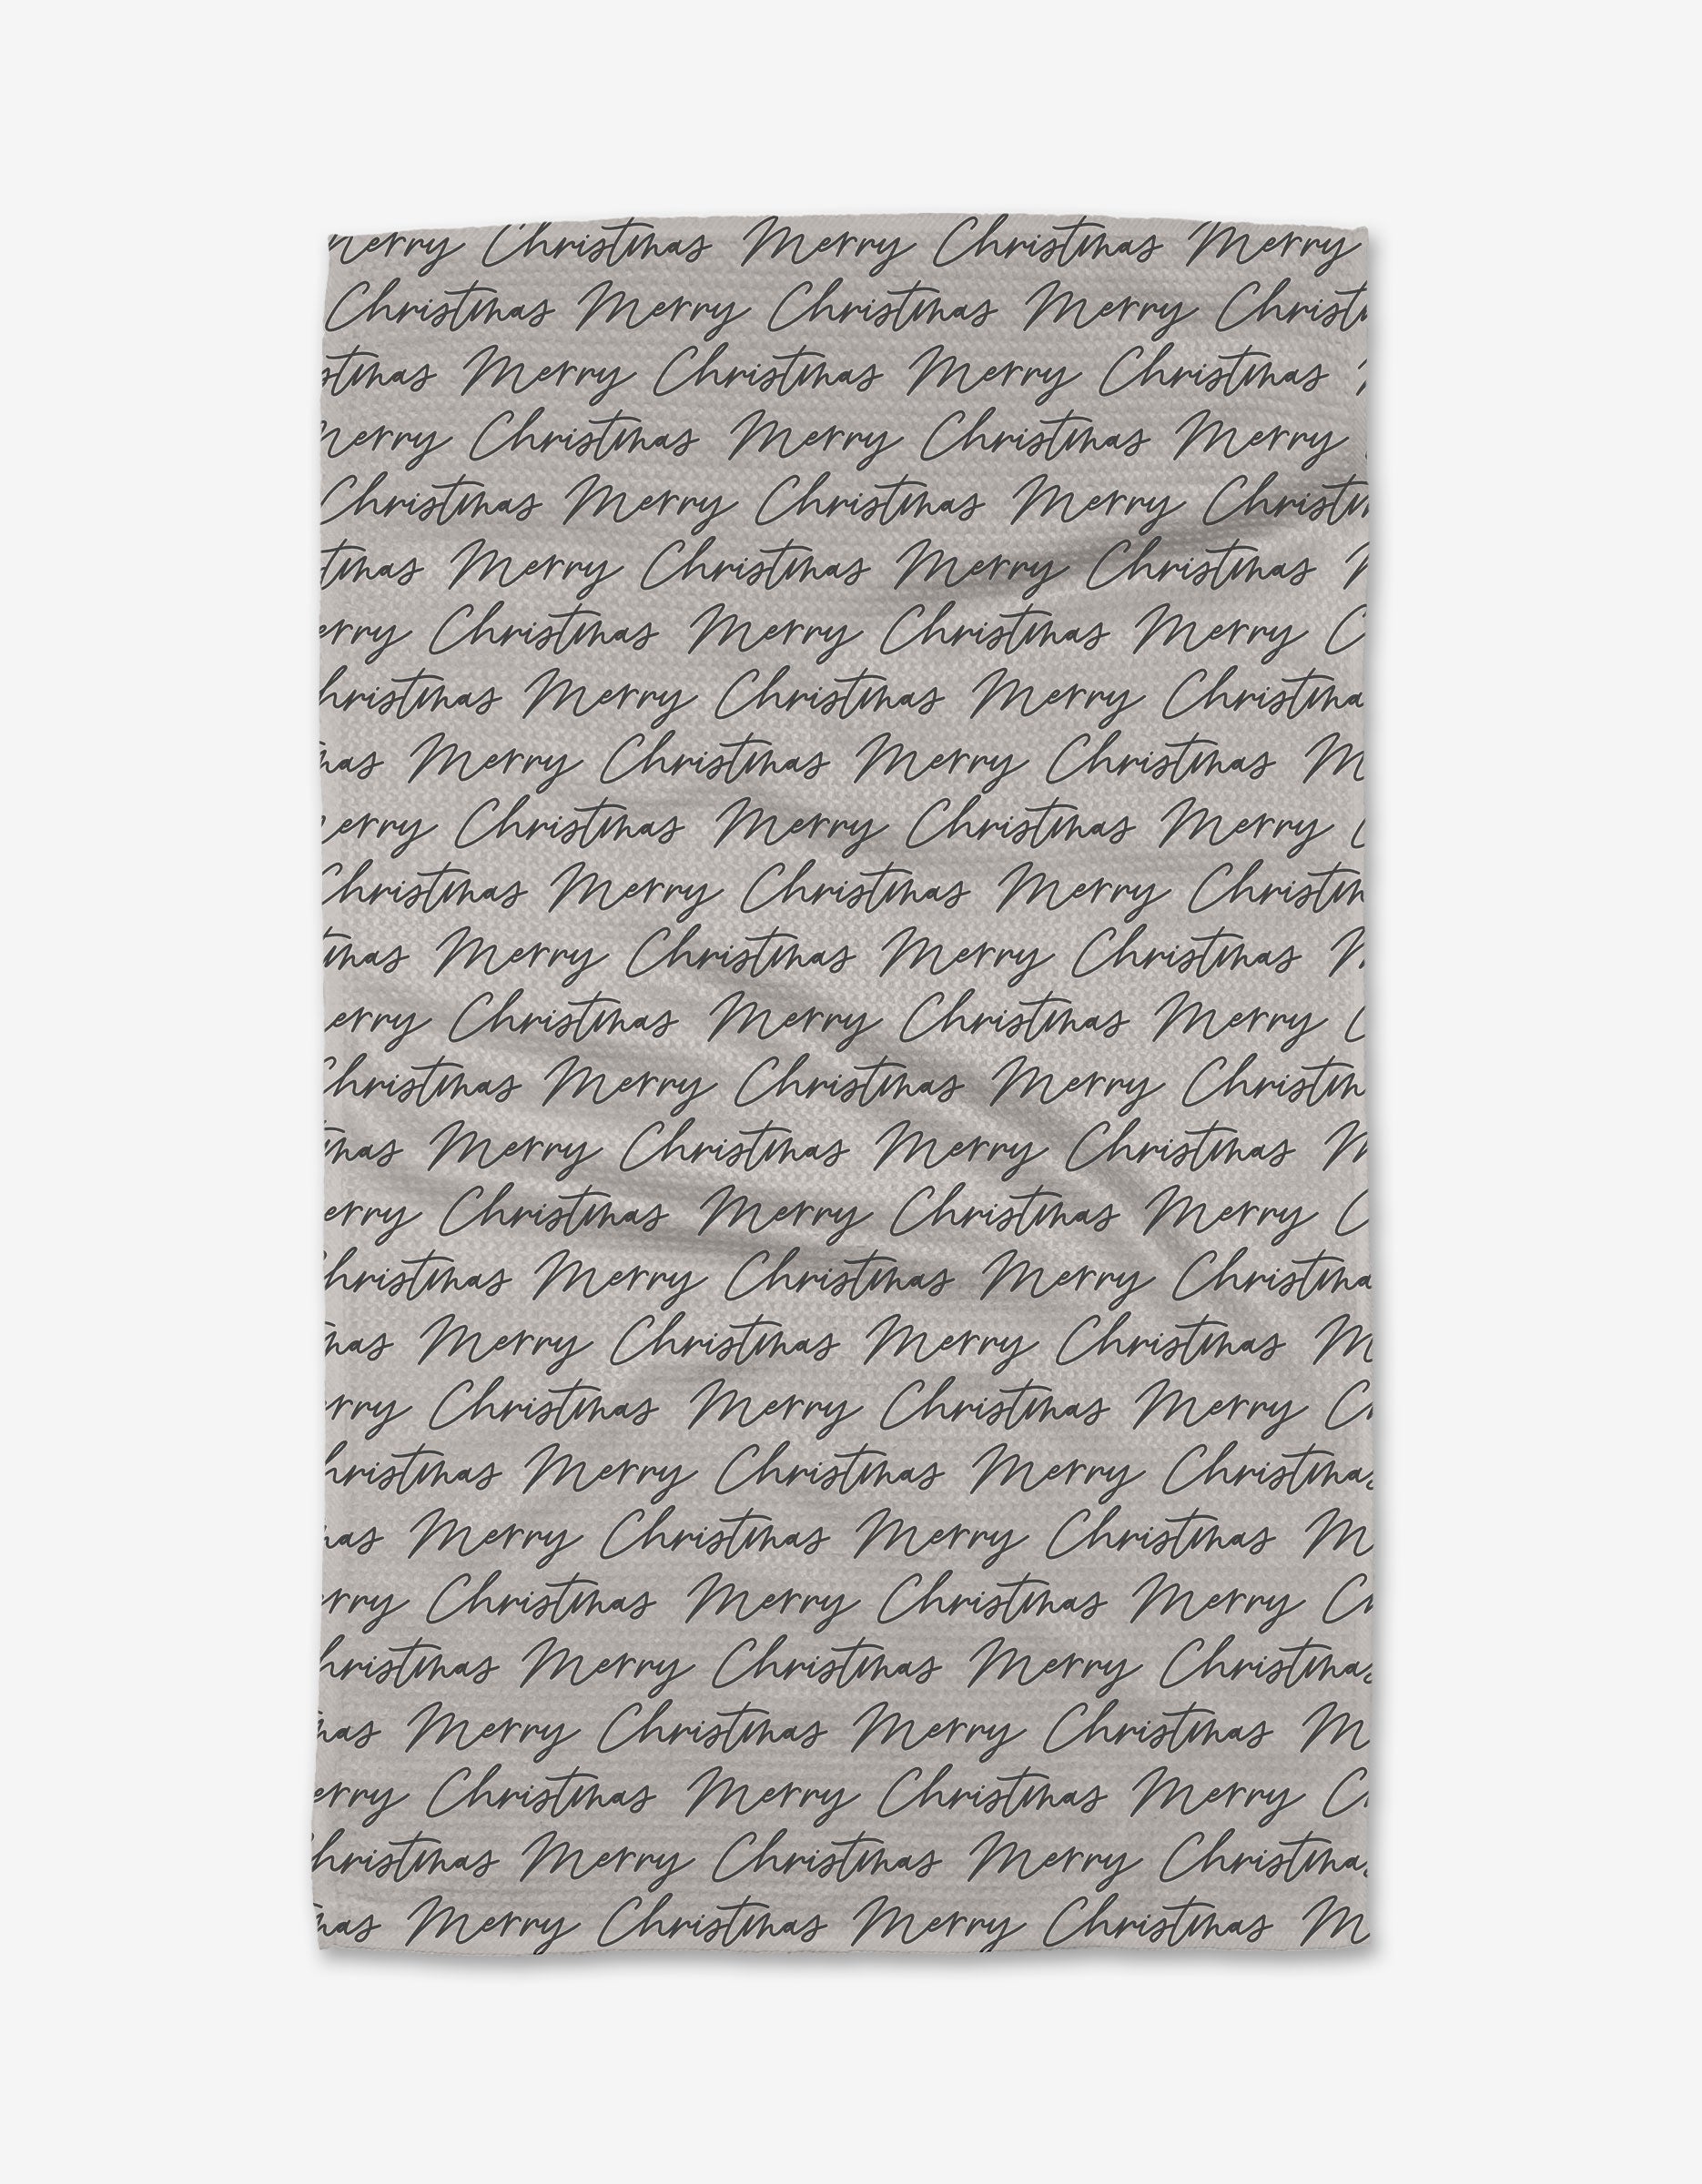 merry Christmas Merry Christmas Merry
Christmas Merry Christmas Merry Christ
stmas Merry Christmas Merry Christmas
merry Christmas Merry Christmas Merry
Christmas Merry Christmas Merry Christm
tmas Merry Christmas Merry Christmas M
erry Christmas Merry Christmas Merry C
hristmas Merry Christmas Merry Christma
mas Merry Christmas Merry Christmas M
erry Christmas Merry Christmas Merry C
Christmas Merry Christmas Merry Christm
mas Merry Christmas Merry Christmas M
erry Christmas Merry Christmas Merry C
Christmas Merry Christmas Merry Christm
mas Merry Christmas Merry Christmas M
erry Christmas Merry Christmas Merry C
hristmas Merry Christmas Merry Christma
mas Merry Christmas Merry Christmas M
rry Christmas Merry Christmas Merry C
hristmas Merry Christmas Merry Christmas
mas Merry Christmas Merry Christmas M
rry Christmas Merry Christmas Merry Ch
hristmas Merry Christmas Merry Christmas
mas Merry Christmas Merry Christmas M
erry Christmas Merry Christmas Merry C
hristmas Merry Christmas Merry Christma
mas Merry Christmas Merry Christmas M